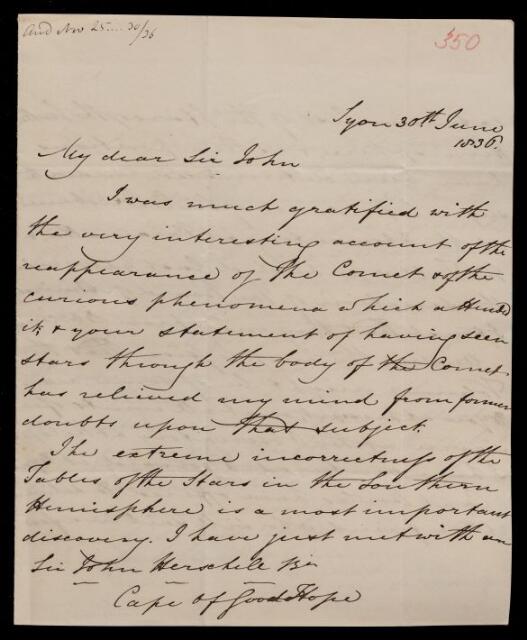 Ansd Nov 25.... 30/36
350
Syon 30th June
1836.
My dear Sir John
I was much gratified with
the very interesting account of the
reappearance of the Comet & of the
curious phenomena which attend
it; & your statement of having seen
stars through the body of the Comet
has relieved my mind from former
doubts upon that subject.
The extreme incorrectness of the
Tables of the Stars in the Southern
Hemisphere is a most important
discovery. I have just met with an
Sir John Herschell Bt
Cape of Good Hope